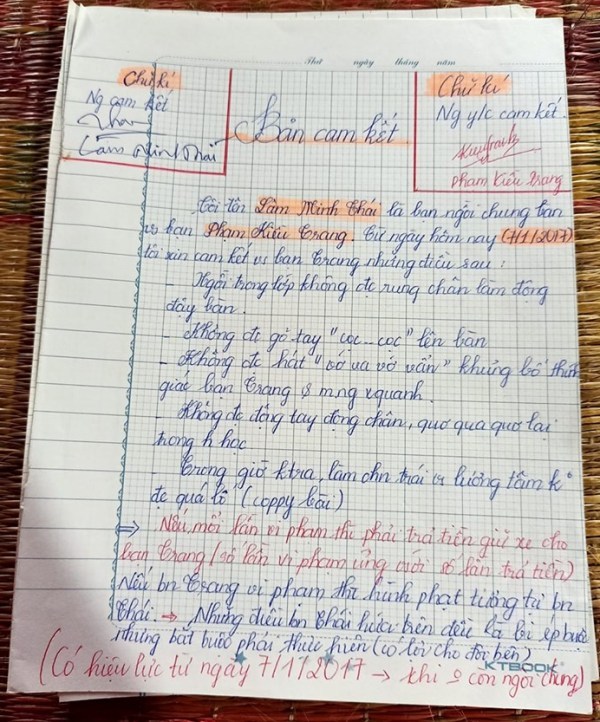 Thứ ngày tháng năm
Chữ kí
Ng cam kết
Lâm Minh Thái
Bản cam kết
Chữ kí
Ng y/c cam kết.
Phạm Kiều Trang
Tôi tên Lâm Minh Thái là bạn ngồi chung bàn
vs bạn Phạm Kiều Trang. Từ ngày hôm nay (7/1/2017)
tôi xin cam kết vs bạn Trang những điều sau:
- Ngồi trong lớp không đc rung chân làm động
dãy bàn.
- Không đc gõ tay "cọc_cọc" lên bàn
- Không đc hát "vớ va vớ vẩn" khủng bố thính
giác bạn Trang & m.ng xquanh.
- Không đc động tay động chân, quơ qua quơ lại
trong h học
- Trong giờ ktra, làm chn trái vs lương tâm k°
đc quá lố (coppy bài)
⇒ Nếu, mỗi lần vi phạm thì phải trả tiền giữ xe cho
bạn Trang (số lần vi phạm ứng với số lần trả tiền)
Nếu bn Trang vi phạm thì hình phạt tương tự bn
Thái. → Những điều bn Thái hứa trên đều là bị ép buộc
nhưng bắt buộc phải thực hiện (có lợi cho đôi bên)
KTBOOK
(Có hiệu lực từ ngày 7/1/2017 → khi còn ngồi chung)